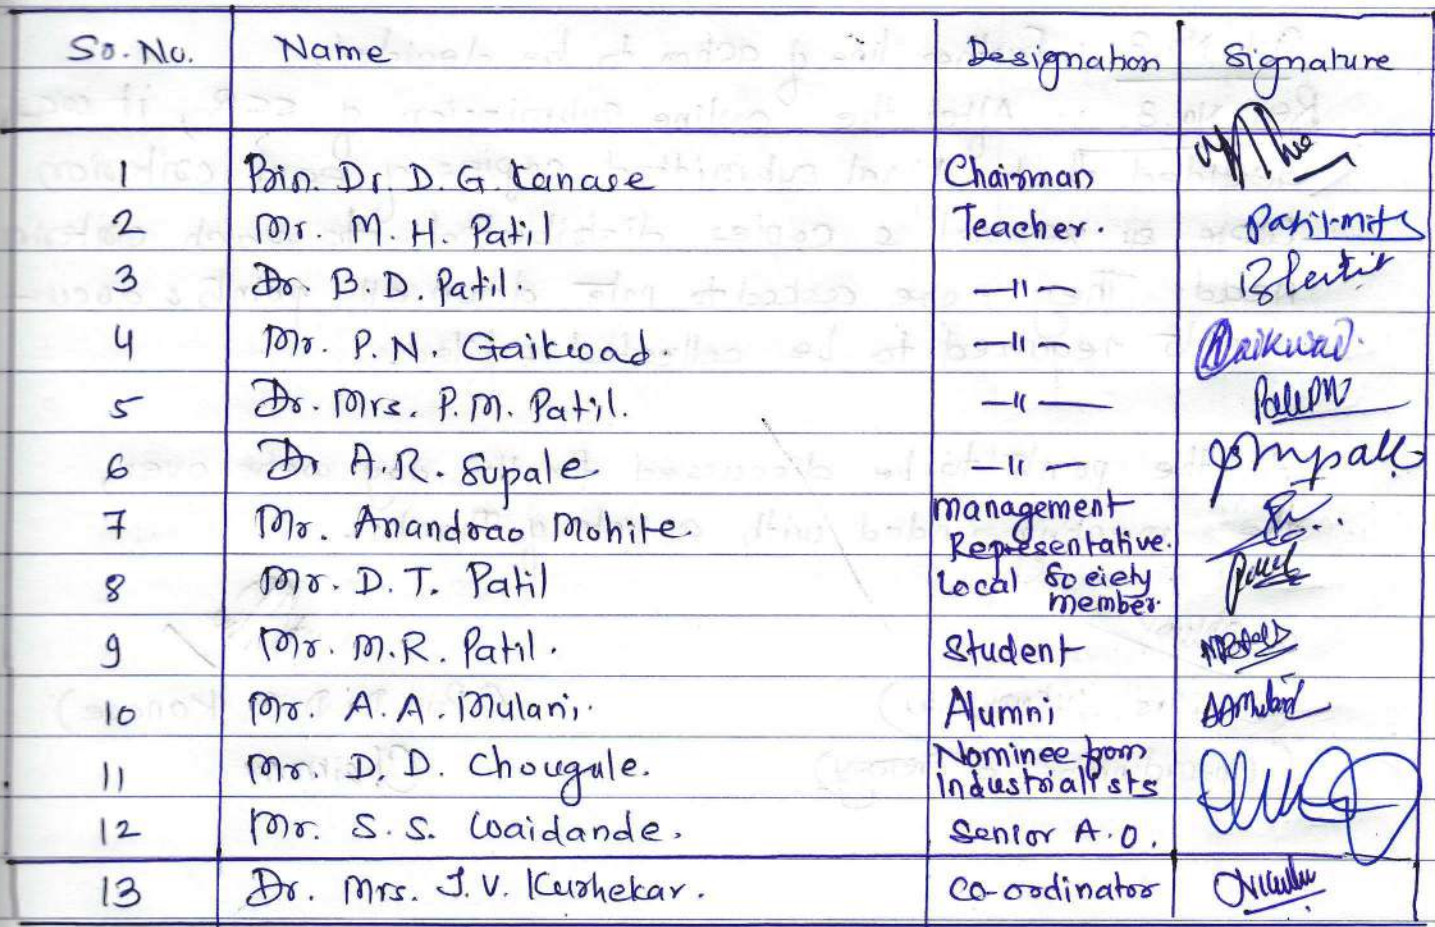 Sr. No. Name Designation Signature
1 Prin. Dr. D. G. Kanase Chairman
2 Mr. M. H. Patil Teacher. Patil MH
3 Dr. B. D. Patil. —"—
4 Mr. P. N. Gaikwad. —"— Gaikwad.
5 Dr. Mrs. P. M. Patil. —"—
6 Dr A. R. Supale —"—
7 Mr. Anandrao Mohite. Management
Representative.
8 Mr. D. T. Patil Local Society
member.
9 Mr. M. R. Patil. Student
10 Mr. A. A. Mulani. Alumni AAMulani
11 Mr. D. D. Chougule. Nominee from
industrialists
12 Mr. S. S. Waidande. Senior A.O.
13 Dr. Mrs. J. V. Kurhekar. Co-ordinator